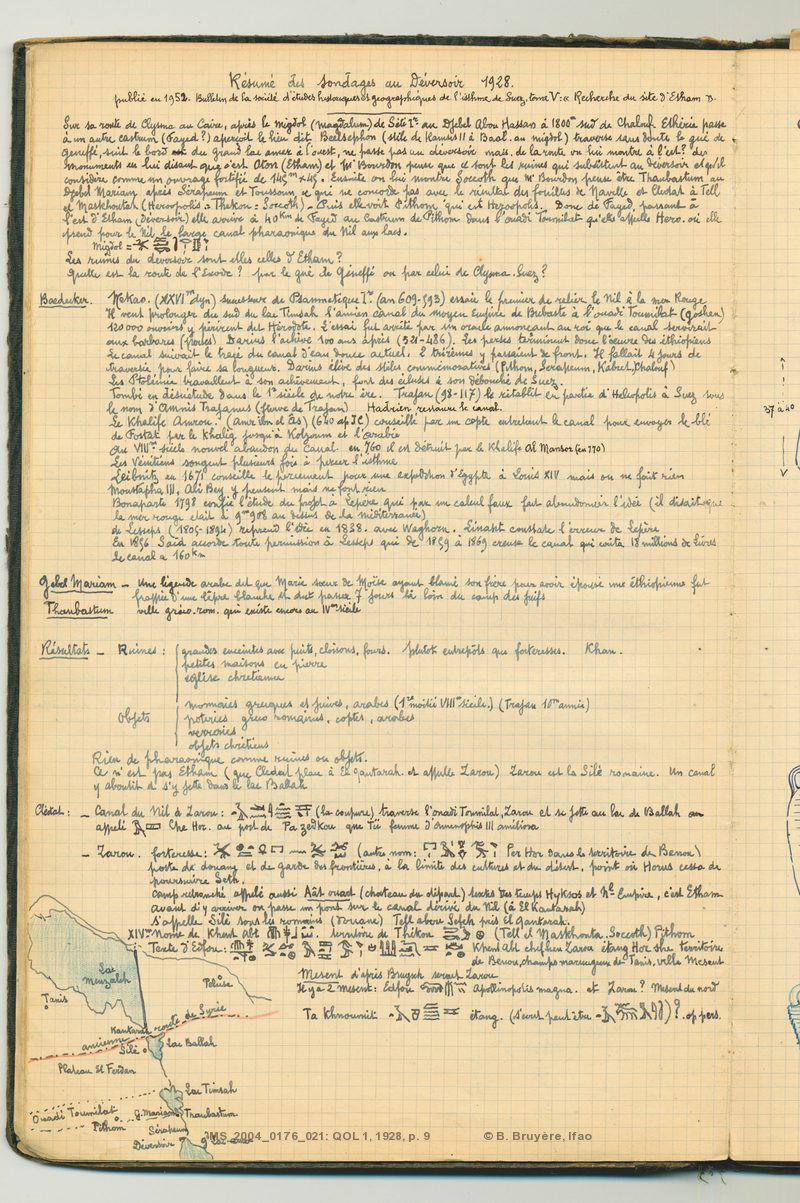 Résumé des sondages au Déversoir 1928.
publié en 1952. Bulletin de la société d'études historiques et géographiques de l'isthme de Suez, tome V: « Recherche du site d'Etham ».
Sur sa route de Clysma au Caire, après le migdol (magdalum) de Séti Ier au Djebel Abou Hassan à 1800m sud de Chalouf Ethérie passe
à un autre castrum (Fayed?) aperçoit le lieu dit Beelsephon (stèle de Ramsès II à Baal au migdol) traverse sans doute le gué de
Geneffé, suit le bord du grand lac amer à l'ouest, ne passe pas au déversoir mais de la route on lui montre à l'est? des
monuments en lui disant que c'est Oton (Etham) et Mr Bourdon pense que ce sont les ruines qui subsistent au déversoir et qu'il
considère comme un ouvrage fortifié de 145m x 45. Ensuite on lui montre Soccoth que Mr Bourdon pense être Thaubastum au
Djebel Mariam après Sérapeum et Toussoum, ce qui ne concorde pas avec le résultat des fouilles de Naville et Clédat à Tell
el Maskhoutah (Heroopolis = Thekou = Soccoth) - Puis elle voit Pithom qui est Heroopolis. Donc de Fayed, passant à
l'est d'Etham (déversoir) elle arrive à 40Km de Fayed au Castrum de Pithom dans l'ouadi Toumilat qu'elle appelle Hero. où elle
prend pour le Nil le large canal pharaonique du Nil aux lacs.
Migdol =
Les ruines du déversoir sont elles celles d'Etham?
Quelle est la route de l'Exode? par le gué de Géneffé ou par celui de Clysma-Suez?
Baedecker. Nekao. (XXVIme dyn) successeur de Psammetique Ier. (an 609-593) essaie le premier de relier le Nil à la mer Rouge
Il veut prolonger au sud du lac Timsah l'ancien canal du moyen Empire de Bubaste à l'ouadi Toumilat (Goshen)
120000 ouvriers y périrent dit Hérodote. L'essai fut arrêté par un oracle annonçant au roi que le canal servirait
aux barbares (perses) Darius l'achève 100 ans après (521-486). Les perses terminent donc l'oeuvre des éthiopiens
Le canal suivait le tracé du canal d'eau douce actuel. 2 trirèmes y passaient de front. Il fallait 4 jours de
traversée pour faire sa longueur. Darius élève des stèles commémoratives (Pithom, Serapeum, Kabret, Chalouf)
Les Ptolémée travaillent à son achèvement, font des écluses à son débouché de Suez.
Tombé en désuétude dans le 1er siècle de notre ère. Trajan (98-117) le rétablit en partie d'Heliopolis à Suez sous
le nom d'Amnis Trajanus (fleuve de Trajan) Hadrien restaure le canal.
Le Khalife Amrou. (Amr ibn el As) (640 ap JC) conseillé par un copte entretient le canal pour envoyer le blé
de Fostat par le Khalig jusqu'à Kolzoum et l'arabie
Au VIIIme siècle nouvel abandon du Canal. en 760 il est détruit par le Khelife Al Mansor (en 770)
Les Vénitiens songent plusieurs fois à percer l'isthme
Leibnitz en 1671 conseille le percement pour une expédition d'Egypte à Louis XIV mais on ne fait rien
Moustapha III, Ali Bey y pensent mais ne font rien
Bonaparte 1798 confie l'étude du projet à Lepère qui par un calcul faux fait abandonner l'idée (il disait que
la mer rouge était de 9m908 au dessus de la méditerranée)
de Lesseps (1805-1894) reprend l'idée en 1838. avec Waghorn. Linant constate l'erreur de Lepère
En 1856 Saïd accorde toute permission à Lesseps qui de 1859 à 1869 creuse le canal qui coûta 18 millions de livres
Le canal a 160Km
37 à 40
Gebel Mariam - Une légende arabe dit que Marie soeur de Moïse ayant blamé son frère pour avoir épousé une éthiopienne fut
frappée d'une lèpre blanche et dut passer 7 jours là loin du camp des juifs
Thaubastum ville gréco. rom. qui existe encore au IVme siècle
Résultats - Ruines: grandes enceintes avec puits, cloisons, fours. plutôt entrepôts que forteresses. Khan.
petites maisons en pierre
église chrétienne
Objets monnaies grecques et juives, arabes (1re moitié VIIIme siècle.) (Trajan 10me année)
poteries gréco romaines, coptes, arabes
verreries
objets chrétiens
Rien de pharaonique comme ruines ou objets.
Ce n'est pas Etham (que Cledat place à El Qantarah. et appelle Zarou) Zarou est la Silé romaine. Un canal
y aboutit et s'y jette dans le lac Ballah
Clédat: - Canal du Nil à Zarou: (la coupure) traverse l'ouadi Toumilat, Zarou et se jette au lac de Ballah
appelé She Hor. au port de Pa zedkou que Tii femme d'Amenophis III améliora
- Zarou. forteresse: (autre nom: Per Hor dans le territoire de Benou)
poste de douane et de garde des frontières, à la limite des cultures et du désert. point où Horus cessa de
poursuivre Seth.
camp retranché appelé aussi Aât ouart (chateau du départ) textes des temps Hyksos et Nel Empire, c'est Etham
avant d'y arriver on passe un pont sur le canal dérivé du Nil (à El Kantarah)
s'appelle Silé sous les romains (Douane) Tell abou Sefeh près El Qantarah.
XIVme Nome de Khent Abt territoire de Thékou (Tell el Maskhouta. Soccoth) Pithom
Texte d'Edfou: Khent Abt chef lieu Zarou étang Hor she territoire
de Benou, champs marécageux de Tanis, ville Mesent
Mesent d'après Brugsh serait Zarou
Il y a 2 Mesent: Edfou Apollinopolis magna. et Zarou? Mesent du nord
Ta Khnoumit étang. (serait peut être )? op pers.
Lac Menzaleh
Péluse
Tanis
Kantarah
ancienne route de Syrie
Silé
Lac Ballah
Plateau El Ferdan
Lac Timsah
Ouadi Toumilat
G. Mariam
Thaubastum
Pithom
Sérapeum
Déversoir
MS_2004_0176_021: QOL 1, 1928, p. 9 © B. Bruyère, Ifao